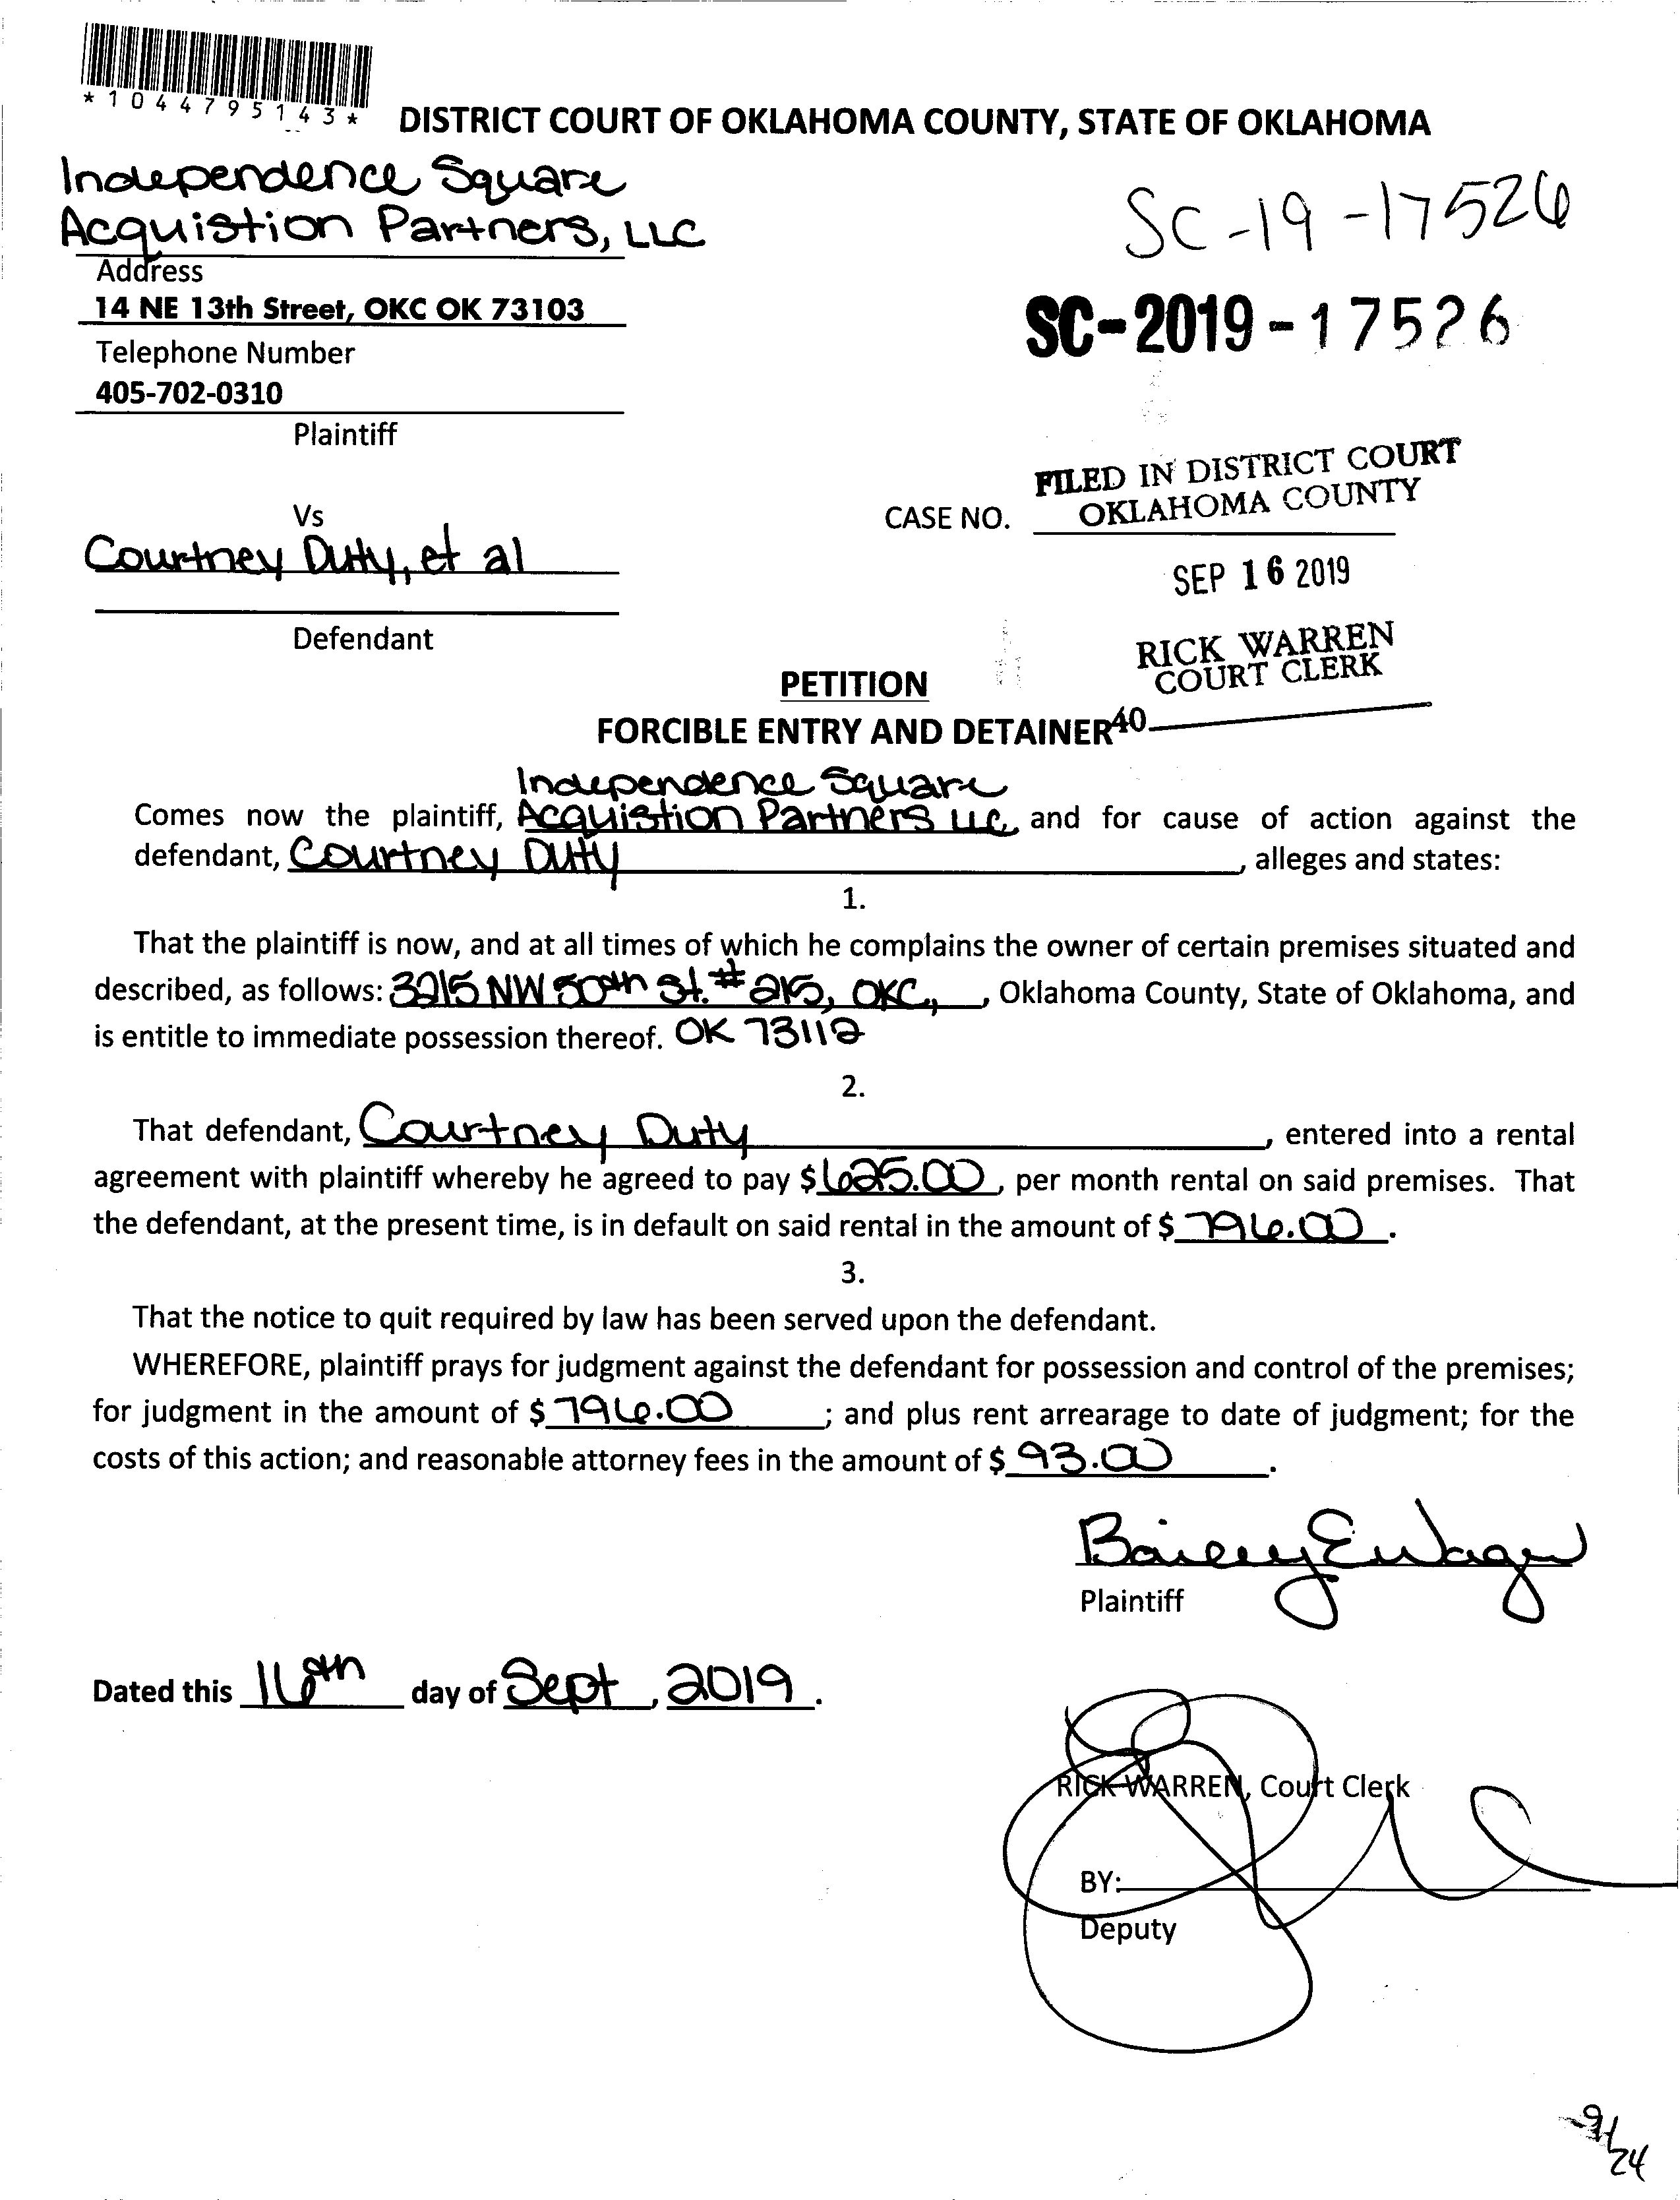 *1044795143*
DISTRICT COURT OF OKLAHOMA COUNTY, STATE OF OKLAHOMA
Independence Square
Acquistion Partners, LLC
SC-19-17526
Address
14 NE 13th Street, OKC OK 73103
SC-2019-17526
Telephone Number
405-702-0310
Plaintiff
FILED IN DISTRICT COURT
OKLAHOMA COUNTY
Vs
CASE NO.
Courtney Duty, et al
SEP 16 2019
Defendant
RICK WARREN
COURT CLERK
PETITION
FORCIBLE ENTRY AND DETAINER
40
Independence Square
Comes now the plaintiff, Acquistion Partners LLC, and for cause of action against the
defendant, Courtney Duty, alleges and states:
1.
That the plaintiff is now, and at all times of which he complains the owner of certain premises situated and
described, as follows: 3215 NW 50th St. #215, OKC, , Oklahoma County, State of Oklahoma, and
is entitle to immediate possession thereof. OK 73112
2.
That defendant, Courtney Duty, entered into a rental
agreement with plaintiff whereby he agreed to pay $625.00, per month rental on said premises. That
the defendant, at the present time, is in default on said rental in the amount of $ 796.00.
3.
That the notice to quit required by law has been served upon the defendant.
WHEREFORE, plaintiff prays for judgment against the defendant for possession and control of the premises;
for judgment in the amount of $ 796.00; and plus rent arrearage to date of judgment; for the
costs of this action; and reasonable attorney fees in the amount of $ 93.00.
Plaintiff
Dated this 16th day of Sept, 2019.
RICK WARREN, Court Clerk
BY:
Deputy
9/24